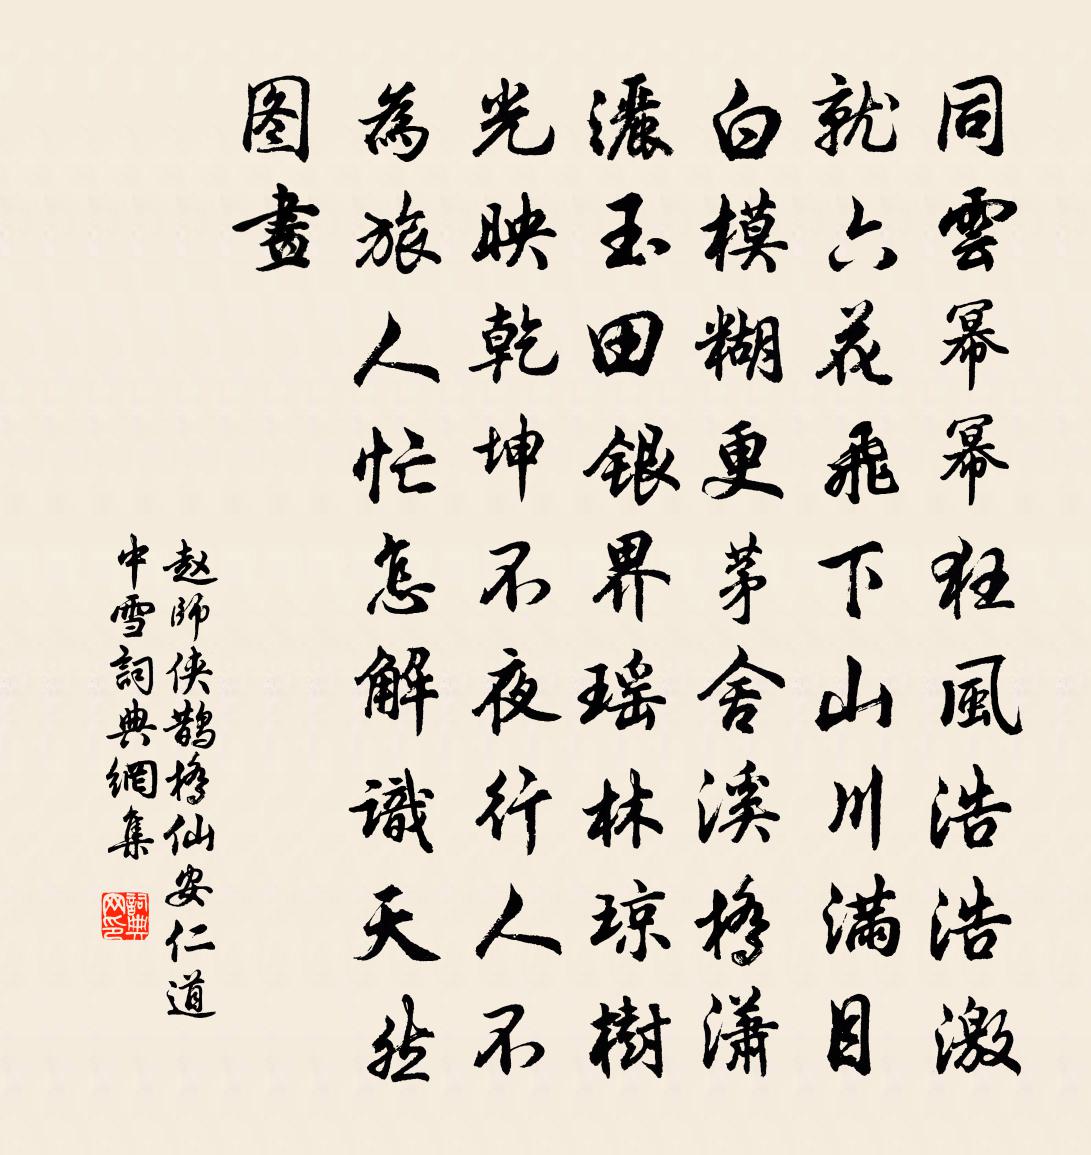 同雲冪冪狂風浩浩激
就六花飛下山川滿目
白模糊更茅舍溪橋瀟
灑玉田銀界瑶林琼樹
光映乾坤不夜行人不
為旅人忙怎解識天然
图畫
赵師侠鹊橋仙安仁道
中雪詞典網集
詞典网印